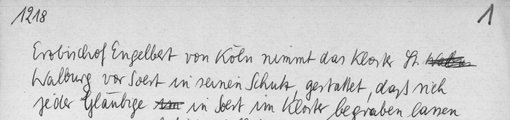 1218
1
Erzbischof Engelbert von Köln nimmt das Kloster St.
Walburg vor Soest in seinen Schutz, gestattet, daß sich
jeder Gläubige in Soest im Kloster begraben lassen